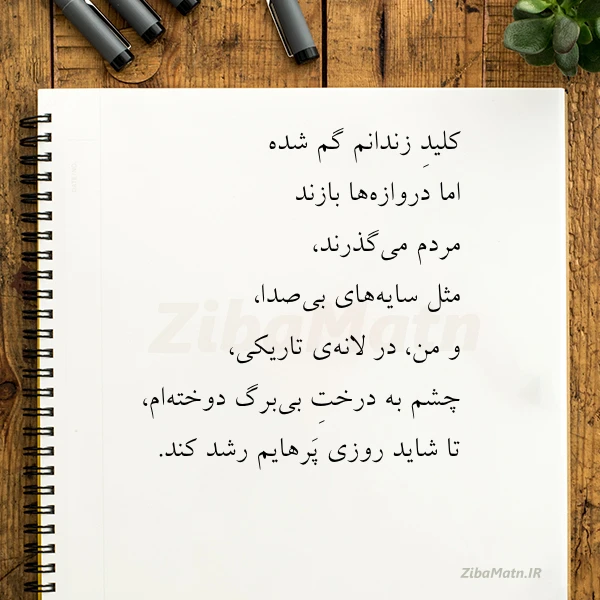 کلیدِ زندانم گم شده
اما دروازه‌ها بازند
مردم می‌گذرند،
مثل سایه‌های بی‌صدا،
و من، در لانه‌ی تاریکی،
چشم به درختِ بی‌برگ دوخته‌ام،
تا شاید روزی پَرهایم رشد کند.
ZibaMatn
ZibaMatn.IR